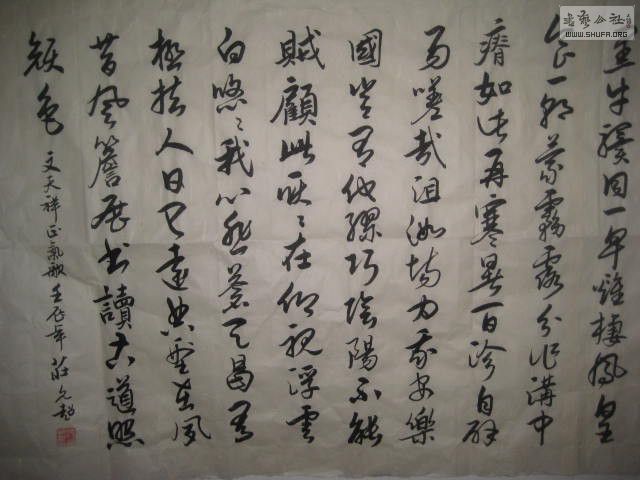 書藝公社
WWW.SHUFA.ORG
黑牛驥同一皁雞棲鳳皇
食一朝蒙霧露分作溝中
瘠如此再寒暑百沴自辟
易嗟哉沮洳場為我安樂
國豈有他繆巧陰陽不能
賊顧此耿〻在仰視浮雲
白悠〻我心悲蒼天曷有
極哲人日已遠典型在夙
昔風簷展書讀古道照
顏色
文天祥正氣歌 壬辰年 莊允